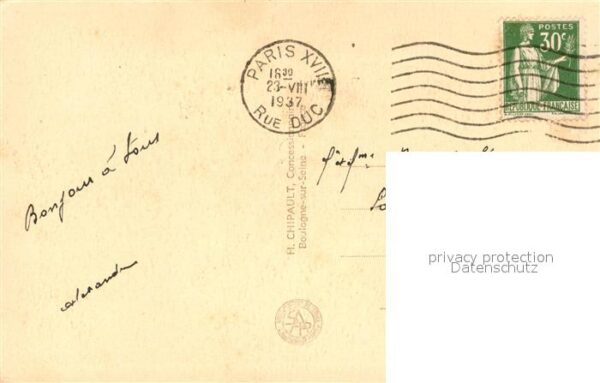 PARIS XVIII
18 30
23-VIII
1937
RUE DUC
POSTES
30c
REPUBLIQUE FRANCAISE
Bonjour à tous
Alexandre
H. CHIPAULT, Concess
Boulogne-sur-Seine -
privacy protection
Datenschutz